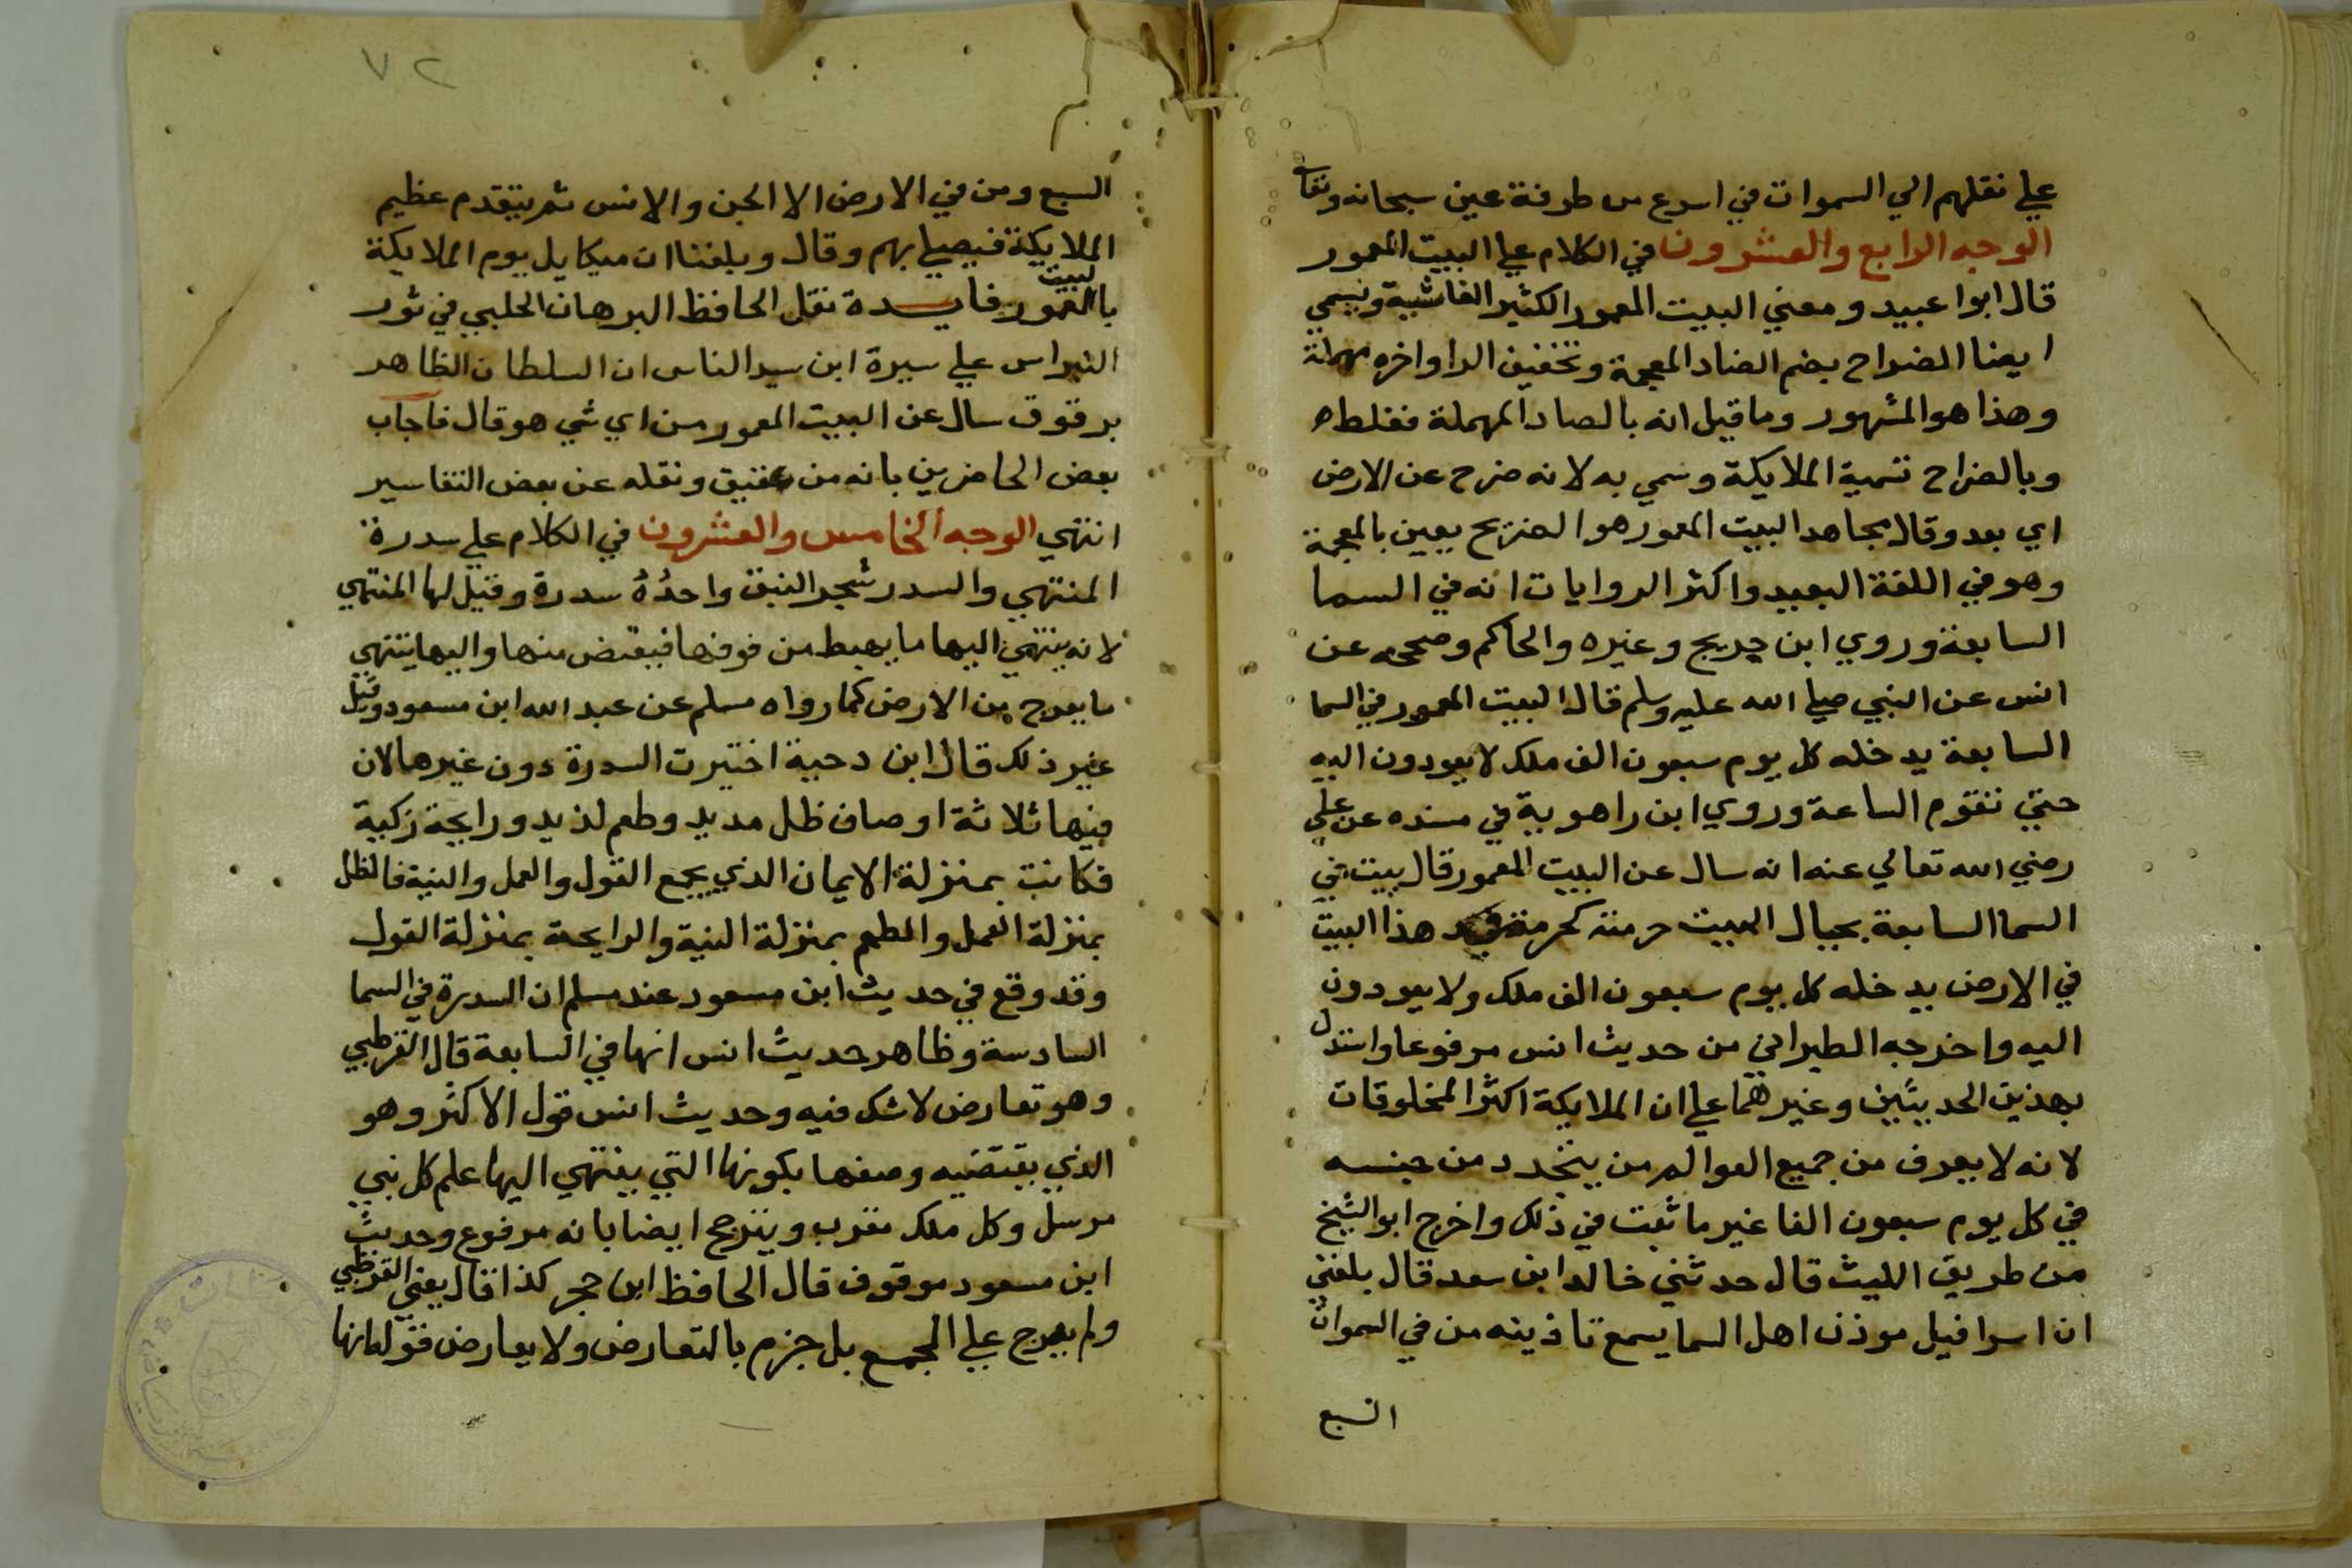 علي نقلهم الي السموات في اسرع من طرفة عين سبحانه وتعا
الوجه الرابع والعشرون في الكلام علي البيت المعمور
قال ابوا عبيد ومعني البيت المعمور الكثير الغاشية ويسمي
ايضا الضراح بضم الضاد المعجمة وتخفيف الرا واخره مهملة
وهذا هو المشهور وما قيل انه بالصاد المهملة فغلط
وبالضراح تسمية الملايكة وسمي به لانه ضرح عن الارض
اي بعد وقال مجاهد البيت المعمور هو الضريح يعين بالمعجمة
وهو في اللغة البعيد واكثر الروايات انه في السما
السابعة وروي ابن جريج وغيره والحاكم وصححه عن
انس عن النبي صلي الله عليه وسلم قال البيت المعمور في السما
السابعة يدخله كل يوم سبعون الف ملك لا يعودون اليه
حتي تقوم الساعة وروي ابن راهوية في مسنده عن علي
رضي الله تعالي عنه انه سال عن البيت المعمور قال بيت في
السما السابعة بحبال البيت حرمته كحرمة هذا البيت
في الارض يدخله كل يوم سبعون الف ملك ولا يعودون
اليه واخرجه الطبراني من حديث انس مرفوعا واستدل
بهذين الحديثين وغيرهما علي ان الملايكة اكثر المخلوقات
لانه لا يعرف من جميع العوالم من يتجدد من جنسه
في كل يوم سبعون الفا غير ما ثبت في ذلك واخرج ابو الشيخ
من طريق الليث قال حدثني خالد ابن سعد قال بلغني
ان اسرافيل موذن اهل السما يسمع تاذينه من في السموات
السبع
٧٢
السبع ومن في الارض الا الجن والانس ثم يتقدم عظيم
الملايكة فيصلي بهم وقال وبلغنا ان ميكايل يوم الملايكة
بالبيت المعمور فايدة نقل الحافظ البرهان الحلبي في نور
النبراس علي سيرة ابن سيد الناس ان السلطان الظاهر
برقوق سال عن البيت المعمور من اي شي هو قال فاجاب
بعض الحاضرين بانه من عقيق ونقله عن بعض التفاسير
انتهي الوجه الخامس والعشرون في الكلام علي سدرة
المنتهي والسدر شجر النبق واحدُهُ سدرة وقيل لها المنتهي
لانه ينتهي اليها ما يهبط من فوقها فيقبض منها واليها ينتهي
ما يعرج من الارض كما رواه مسلم عن عبد الله ابن مسعود وقيل
غير ذلك قال ابن دحية اختيرت السدرة دون غيرها لان
فيها ثلاثة اوصاف ظل مديد وطعم لذيد ورايحة زكية
فكانت بمنزلة الايمان الذي يجمع القول والعمل والنية فالظل
بمنزلة العمل والطعم بمنزلة النية والرايحة بمنزلة القول
وقد وقع في حديث ابن مسعود عند مسلم ان السدرة في السما
السادسة وظاهر حديث انس انها في السابعة قال القرطبي
وهو تعارض لا شك فيه وحديث انس قول الاكثر وهو
الذي يقتضيه وصفها بكونها التي ينتهي اليها علم كل نبي
مرسل وكل ملك مقرب ويترجح ايضا بانه مرفوع وحديث
ابن مسعود موقوف قال الحافظ ابن حجر كذا قال يعني القرطبي
ولم يعرج علي الجمع بل جزم بالتعارض ولا يعارض قوله انها